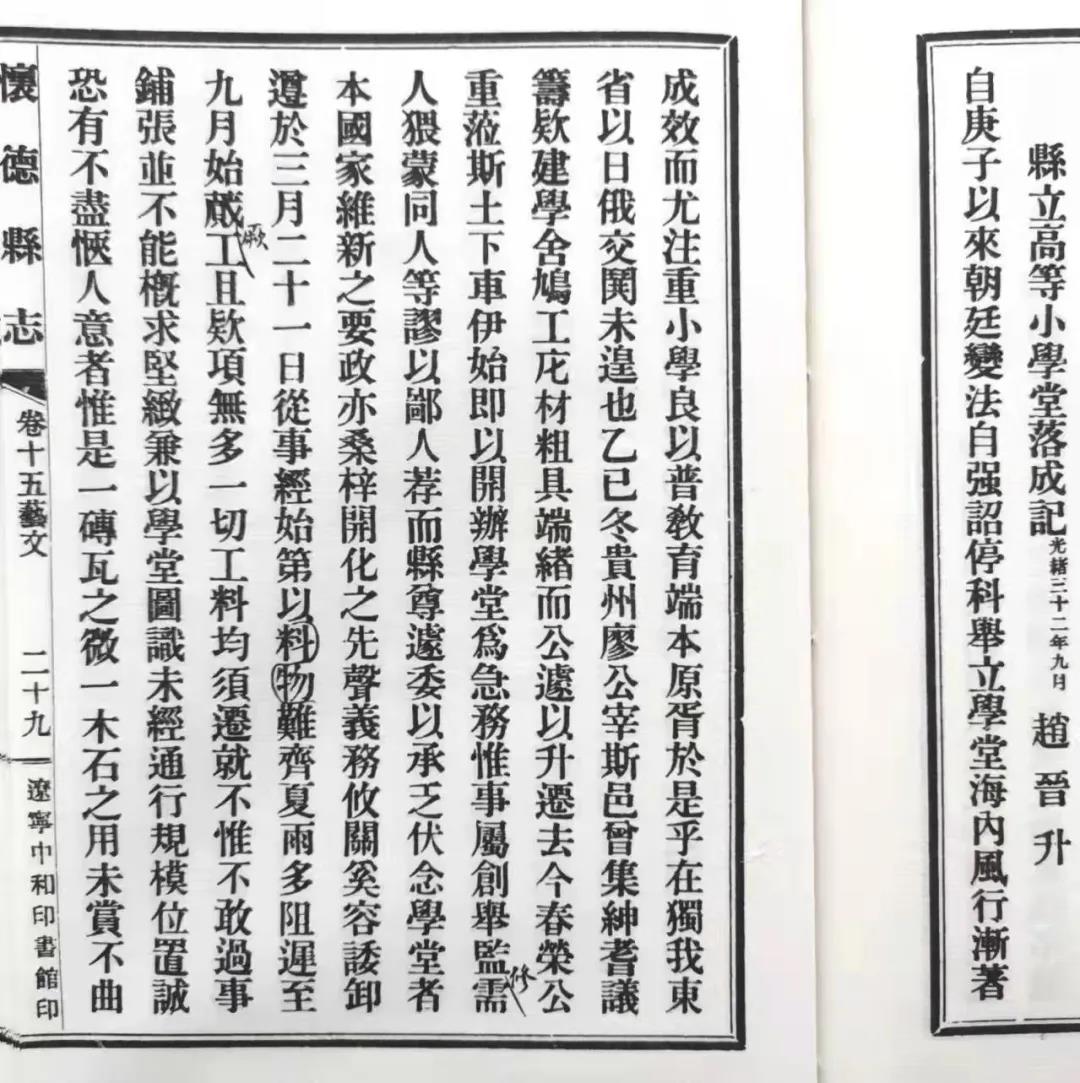 縣立高等小學堂落成記 光緒三十二年九日 趙晉升
自庚子以來朝廷變法自强詔停科舉立學堂海內風行漸著
成效而尤注重小學良以普敎育端本原胥於是乎在獨我東
省以日俄交鬨未遑也乙巳冬貴州廖公宰斯邑曾集紳耆議
籌欵建學舍鳩工庀材粗具端緒而公遽以升遷去今春榮公
重蒞斯土下車伊始即以開辦學堂爲急務惟事屬創舉監需
修
人猥蒙同人等謬以鄙人荐而縣尊遽委以承乏伏念學堂者
本國家維新之要政亦桑梓開化之先聲義務攸關奚容諉卸
遵於三月二十一日從事經始第以料物難齊夏雨多阻遲至
九月始蕆工且欵項無多一切工料均須遷就不惟不敢過事
厥
鋪張並不能槪求堅緻兼以學堂圖識未經通行規模位置誠
恐有不盡愜人意者惟是一磚瓦之微一木石之用未嘗不曲
懷德縣志 卷十五藝文 二十九 遼寧中和印書館印